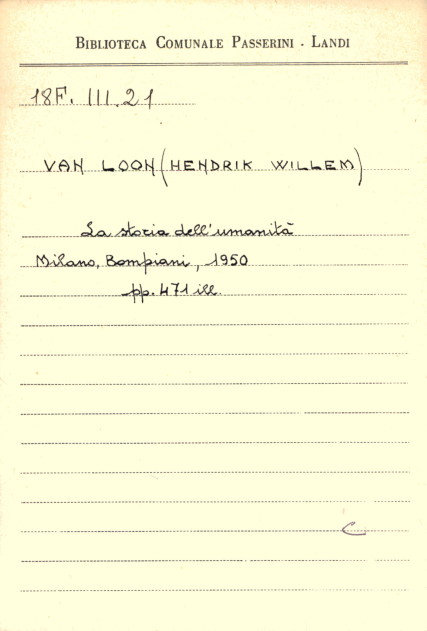 BIBLIOTECA COMUNALE PASSERINI - LANDI
18F. III. 21
VAN LOON (HENDRIK WILLEM)
La storia dell'umanità
Milano, Bompiani, 1950
pp. 471 ill.
C